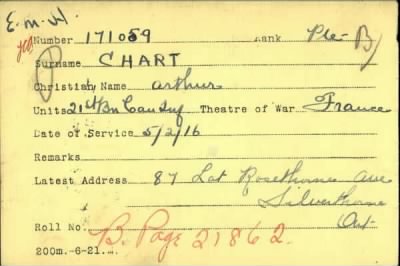 E.M.V.
Number 171059 Rank Pte B
Surname CHART
Christian Name Arthur
Units 21st Bn Can Inf Theatre of War France
Date of Service 5/2/16
Remarks
Latest Address 87 Lot Rosethorne Ave
Silverthorne
Ont
Roll No. B. Page 21862.
200m.-6-21.M.